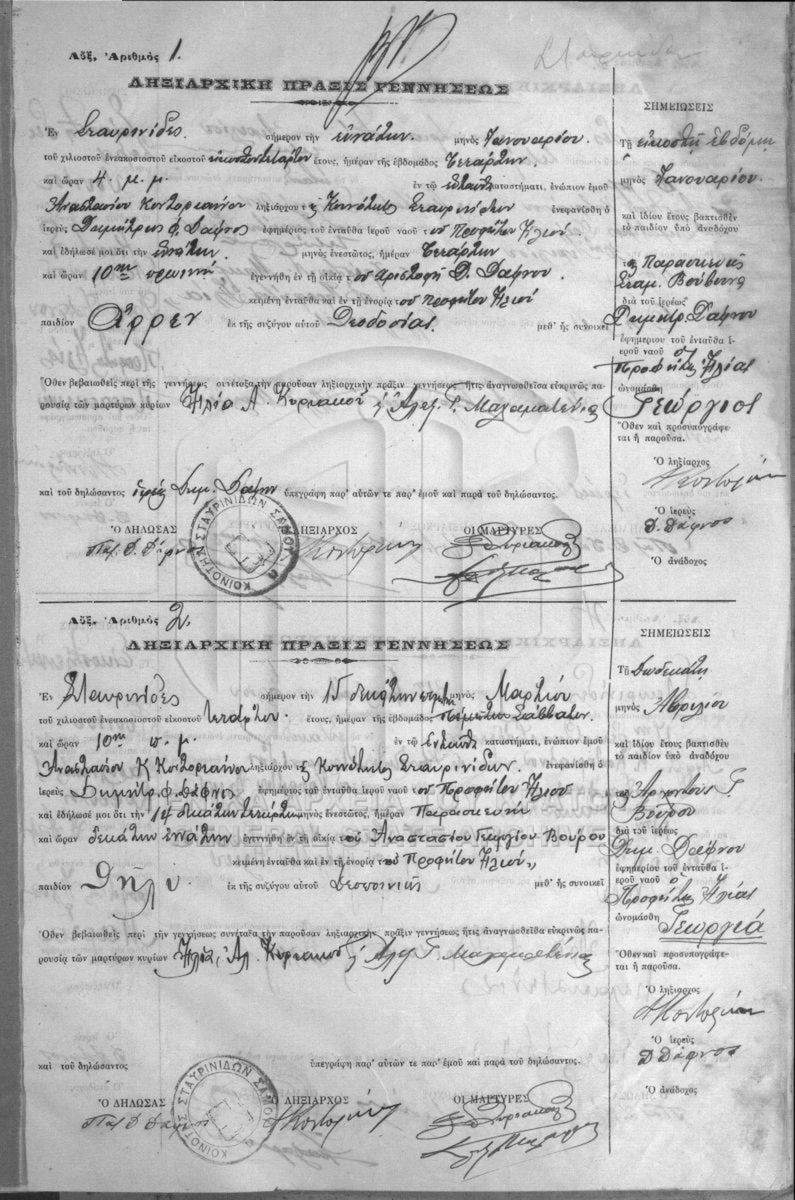 Αὔξ. Ἀριθμὸς 1.
ΛΗΞΙΑΡΧΙΚΗ ΠΡΑΞΙΣ ΓΕΝΝΗΣΕΩΣ
Ἐν Σταυρινίδες σήμερον τὴν ἐνάτην μηνὸς Ἰανουαρίου
τοῦ χιλιοστοῦ ἐνεακοσιοστοῦ εἰκοστοῦ ἔτους, ἡμέραν τῆς ἑβδομάδος Τετάρτην
καὶ ὥραν 4. μ. μ. ἐν τῷ ἐνταῦθα καταστήματι, ἐνώπιον ἐμοῦ
Ἀναστασίου ληξιάρχου τῆς Κοινότητος Σταυρινίδων ἐνεφανίσθη ὁ
ἱερεὺς Δημήτριος Φ. Δάφνος ἐφημέριος τοῦ ἐνταῦθα ἱεροῦ ναοῦ τοῦ Προφήτου Ἠλιού
καὶ ἐδήλωσέ μοι ὅτι τὴν ἐνάτην μηνὸς ἐνεστῶτος, ἡμέραν Τετάρτην
καὶ ὥραν 10ην πρωινὴν ἐγεννήθη ἐν τῇ οἰκίᾳ τοῦ Δ. Δάφνου
κειμένῃ ἐνταῦθα καὶ ἐν τῇ ἐνορίᾳ τοῦ Προφήτου Ἠλιού
παιδίον Ἄρρεν ἐκ τῆς συζύγου αὐτοῦ Θεοδοσίας μεθ᾽ ἧς συνοικεῖ
Ὅθεν βεβαιωθεὶς περὶ τῆς γεννήσεως συνέταξα τὴν παροῦσαν ληξιαρχικὴν πρᾶξιν γεννήσεως ἥτις ἀναγνωσθεῖσα εὐκρινῶς πα-
ρουσίᾳ τῶν μαρτύρων κυρίων Ἠλία Α. Κυριακοῦ & Ἀλεξ. Γ. Μαλαματένια
καὶ τοῦ δηλώσαντος ἱερέως Δημ. Δάφνου ὑπεγράφη παρ᾽ αὐτῶν τε παρ᾽ ἐμοῦ καὶ παρὰ τοῦ δηλώσαντος.
Ὁ ΔΗΛΩΣΑΣ Ο ΛΗΞΙΑΡΧΟΣ ΟΙ ΜΑΡΤΥΡΕΣ
Παπ. Δ. Δάφνος
ΚΟΙΝΟΤΗΣ ΣΤΑΥΡΙΝΙΔΩΝ ΣΑΜΟΥ
ΣΗΜΕΙΩΣΕΙΣ
Τῇ εἰκοστῇ ἑβδόμῃ
μηνὸς Ἰανουαρίου
καὶ ἰδίου ἔτους βαπτισθὲν
τὸ παιδίον ὑπὸ ἀναδόχου
τῆς Παρασκευῆς
Σταμ.
διὰ τοῦ ἱερέως
Δημητρ. Δάφνου
ἐφημερίου τοῦ ἐνταῦθα ἱ-
εροῦ ναοῦ ὁ
Προφήτης Ἠλίας
ὠνομάσθη
Γεώργιος
Ὅθεν καὶ προσυπογράφε-
ται ἡ παροῦσα.
Ὁ ληξίαρχος
Ὁ ἱερεὺς
Δ. Δάφνος
Ὁ ἀνάδοχος
Αὔξ. Ἀριθμὸς 2.
ΛΗΞΙΑΡΧΙΚΗ ΠΡΑΞΙΣ ΓΕΝΝΗΣΕΩΣ
Ἐν Σταυρινίδες σήμερον τὴν 15 δεκάτην πέμπτη μηνὸς Μαρτίου
τοῦ χιλιοστοῦ ἐνεακοσιοστοῦ εἰκοστοῦ τετάρτου ἔτους, ἡμέραν τῆς ἑβδομάδος Σάββατον
καὶ ὥραν 10ην π. μ. ἐν τῷ ἐνταῦθα καταστήματι, ἐνώπιον ἐμοῦ
Ἀναστασίου Κ ληξιάρχου τῆς Κοινότητος Σταυρινίδων ἐνεφανίσθη ὁ
ἱερεὺς Δημήτρ. Φ. Δάφνος ἐφημέριος τοῦ ἐνταῦθα ἱεροῦ ναοῦ τοῦ Προφήτου Ἠλιού
καὶ ἐδήλωσέ μοι ὅτι τὴν 14 δεκάτην τετάρτην μηνὸς ἐνεστῶτος, ἡμέραν Παρασκευὴν
καὶ ὥραν δεκάτην ἐνάτην ἐγεννήθη ἐν τῇ οἰκίᾳ τοῦ Ἀναστασίου Γεωργίου Βούρου
κειμένῃ ἐνταῦθα καὶ ἐν τῇ ἐνορίᾳ τοῦ Προφήτου Ἠλιού
παιδίον Θῆλυ ἐκ τῆς συζύγου αὐτοῦ Δεσποινῆς μεθ᾽ ἧς συνοικεῖ
Ὅθεν βεβαιωθεὶς περὶ τῆς γεννήσεως συνέταξα τὴν παροῦσαν ληξιαρχικὴν πρᾶξιν γεννήσεως ἥτις ἀναγνωσθεῖσα εὐκρινῶς πα-
ρουσίᾳ τῶν μαρτύρων κυρίων Ἠλία Ἀλ. Κυριακοῦ & Ἀλεξ Γ. Μαλαματένια
καὶ τοῦ δηλώσαντος ὑπεγράφη παρ᾽ αὐτῶν τε παρ᾽ ἐμοῦ καὶ παρὰ τοῦ δηλώσαντος.
Ὁ ΔΗΛΩΣΑΣ Ο ΛΗΞΙΑΡΧΟΣ ΟΙ ΜΑΡΤΥΡΕΣ
Παπ. Δ. Δάφνος
ΚΟΙΝΟΤΗΣ ΣΤΑΥΡΙΝΙΔΩΝ ΣΑΜΟΥ
ΣΗΜΕΙΩΣΕΙΣ
Τῇ Δωδεκάτῃ
μηνὸς Ἀπριλίου
καὶ ἰδίου ἔτους βαπτισθὲν
τὸ παιδίον ὑπὸ ἀναδόχου
Γ.
Βούρου
διὰ τοῦ ἱερέως
Δημ. Δάφνου
ἐφημερίου τοῦ ἐνταῦθα ἱ-
εροῦ ναοῦ ὁ
Προφήτης Ἠλίας
ὠνομάσθη
Γεωργία
Ὅθεν καὶ προσυπογράφε-
ται ἡ παροῦσα.
Ὁ ληξίαρχος
Ὁ ἱερεὺς
Δ Δάφνος
Ὁ ἀνάδοχος